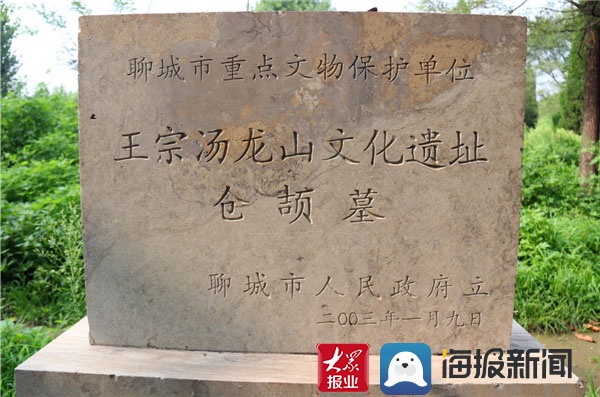 聊城市重点文物保护单位
王宗汤龙山文化遗址
仓颉墓
聊城市人民政府立
二00三年一月九日
大众报业
海报新闻